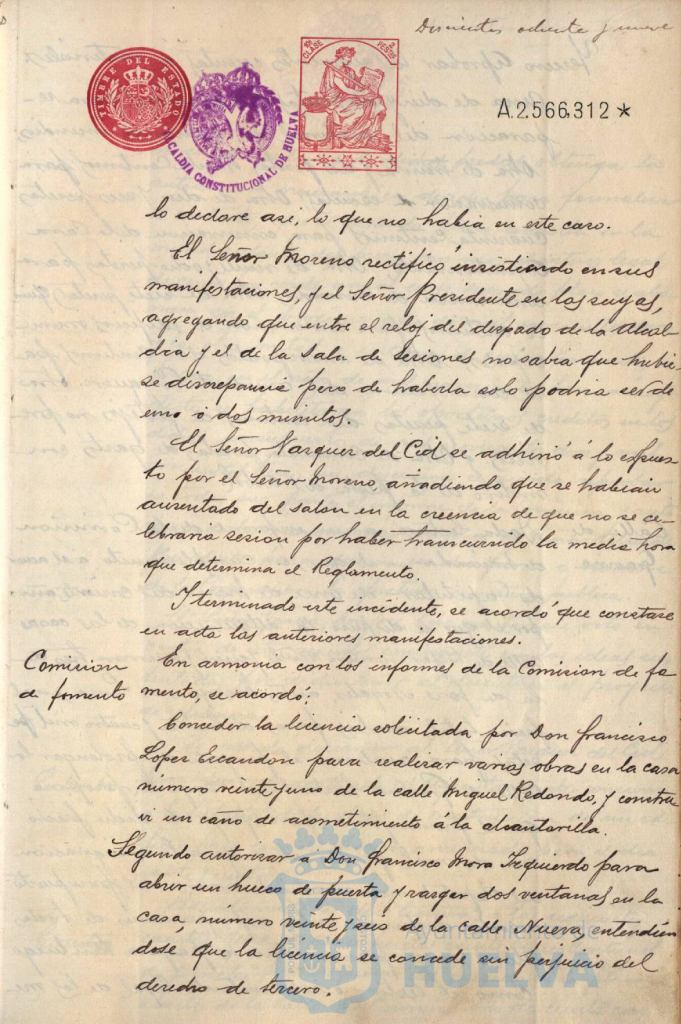 Doscientos ochenta y nueve
TIMBRE DEL ESTADO
ALCALDIA CONSTITUCIONAL DE HUELVA
CLASE
A.2.566,312 *
lo declare asi, lo que no habia en este caso.
El Señor Moreno rectificó insistiendo en sus
manifestaciones, y el Señor Presidente en las suyas,
agregando que entre el reloj del despado de la Alcal-
dia y el de la Sala de Sesiones no sabia que hubie-
se discrepancia pero de haberla solo podria ser de
uno ó dos minutos.
El Señor Vazquez del Cid se adhirió á lo espues-
to por el Señor Moreno, añadiendo que se habian
ausentado del salon en la creencia de que no se ce-
lebraria sesion por haber transcurrido la media hora
que determina el Reglamento.
Y terminado este incidente, se acordó que constase
en acta las anteriores manifestaciones.
Comision
de fomento
En armonia con los informes de la Comision de fo-
mento, se acordó:
Conceder la licencia solicitada por Don Francisco
Lopez Escandon para realizar varias obras en la casa
número veinte y uno de la calle Miguel Redondo, y constru-
ir un caño de acometimiento á la alcantarilla.
Segundo autorizar a Don Francisco Mora Izquierdo para
abrir un hueco de puerta y rasgar dos ventanas en la
casa, número veinte y seis de la calle Nueva, entendien-
dose que la licencia se concede sin perjuicio del
derecho de tercero.
Ayuntamiento de
HUELVA